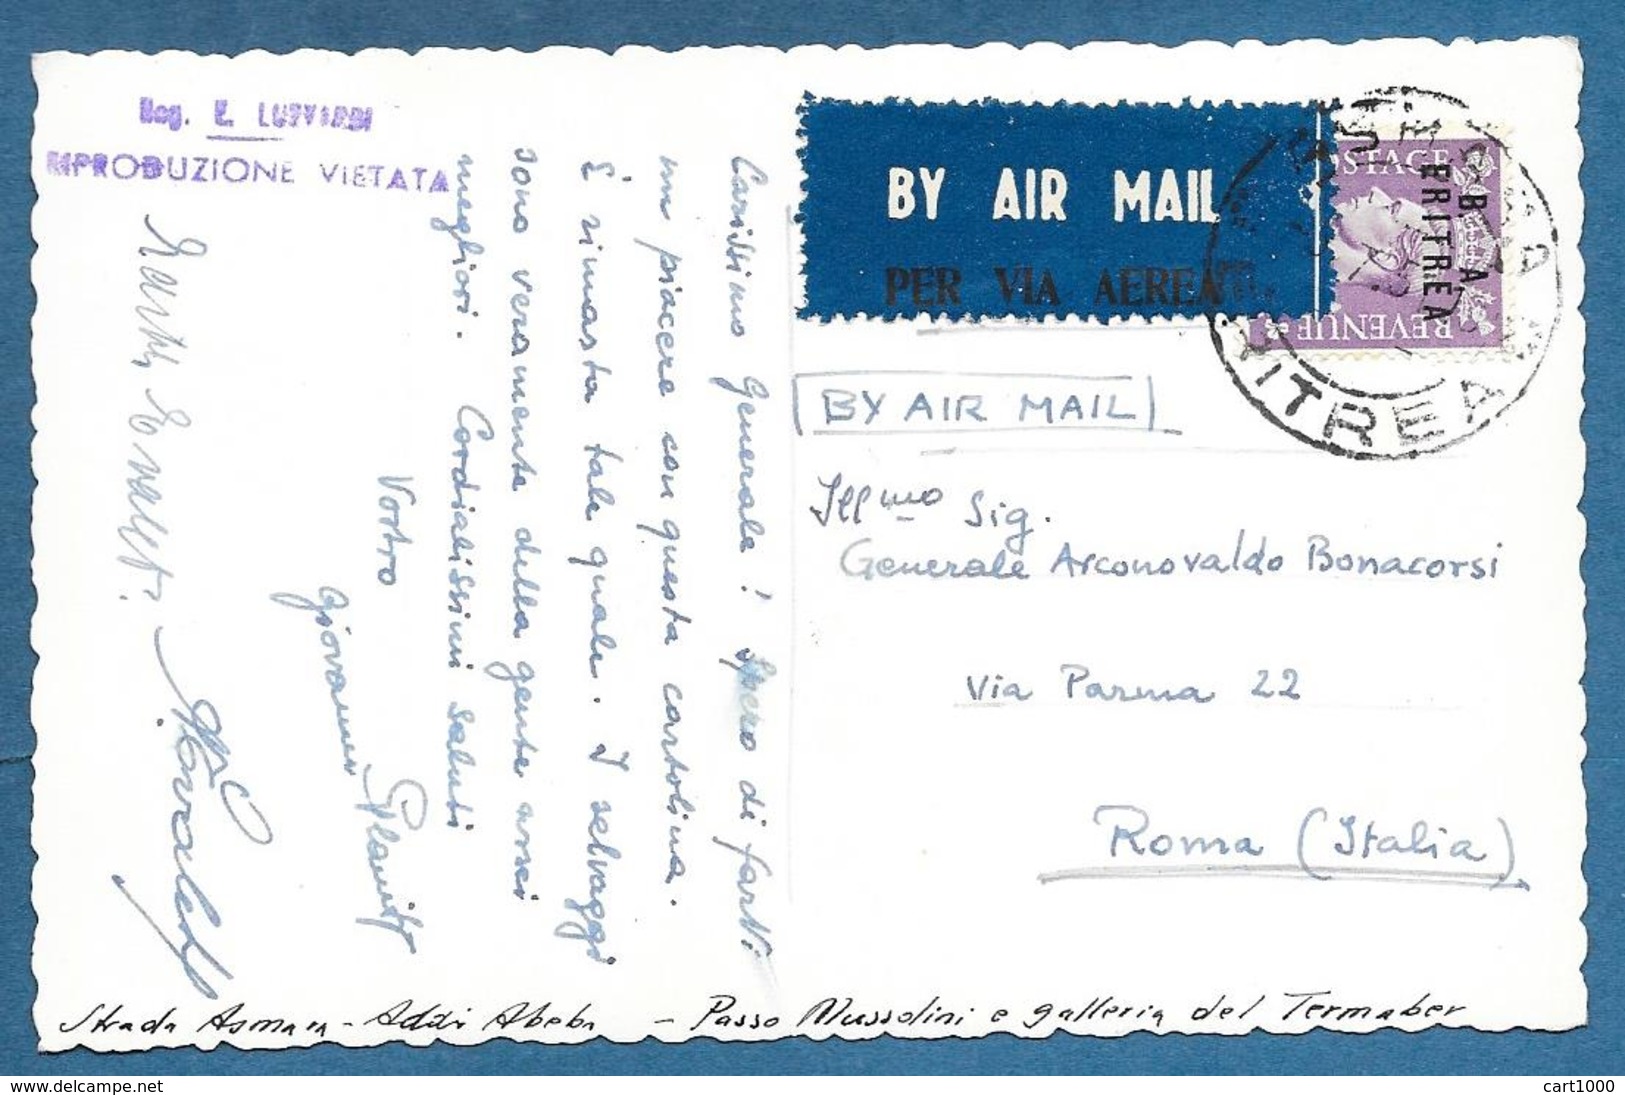 Rag. E. LUSVARDI
RIPRODUZIONE VIETATA
Carissimo Generale! Spero di farti
un piacere con questa cartolina.
È rimasta tale quale. I selvaggi
sono veramente della gente assai
migliori. Cordialissimi saluti
Vostro
Giovanni
BY AIR MAIL
PER VIA AEREA
POSTAGE
REVENUE
B. A.
ERITREA
ERITREA
BY AIR MAIL
Ill mo Sig.
Generale Arconovaldo Bonacorsi
Via Parma 22
Roma (Italia)
Strada Asmara - Addis Abeba - Passo Mussolini e galleria del Termaber
cart1000